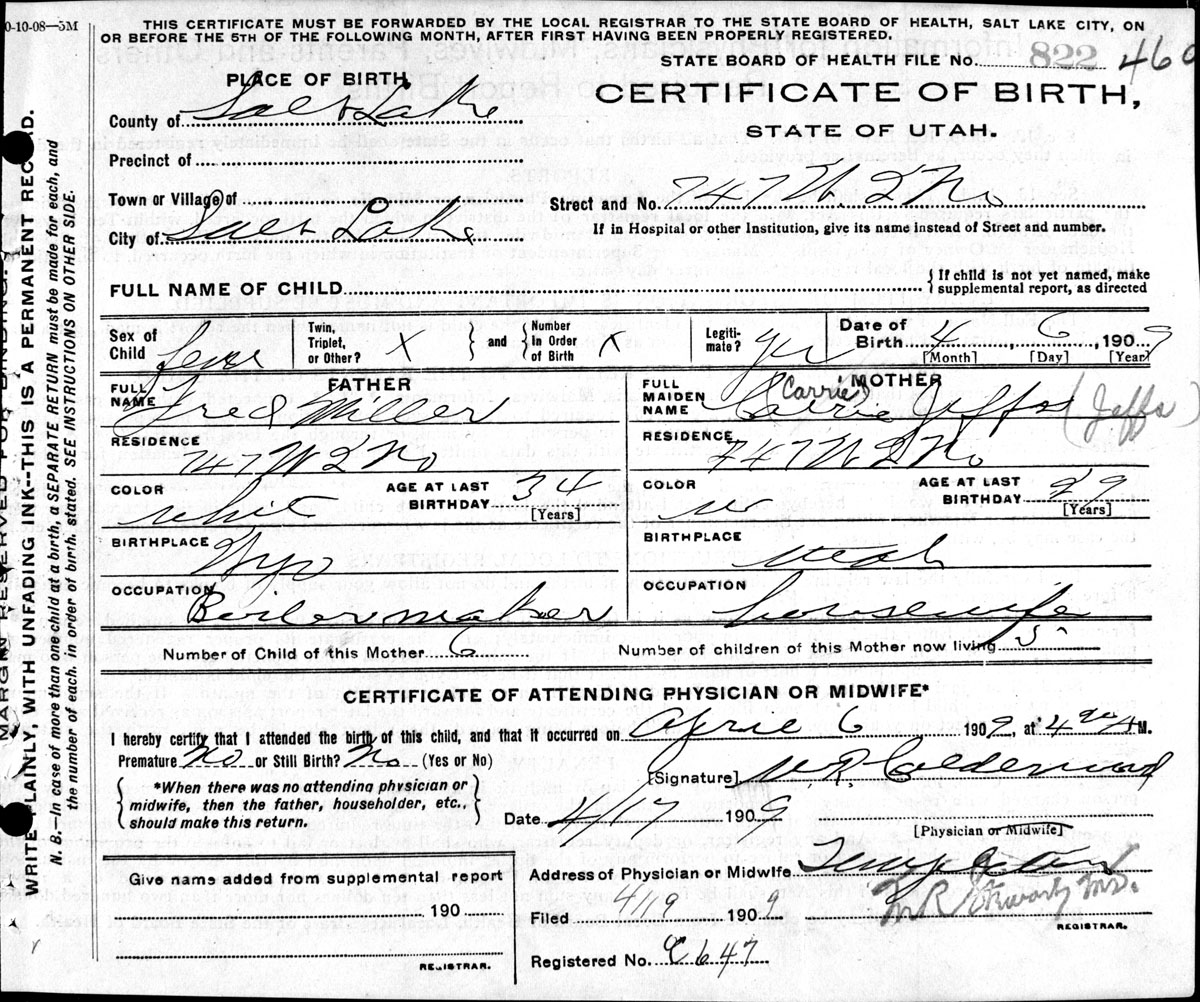 0-10-08—5M
THIS CERTIFICATE MUST BE FORWARDED BY THE LOCAL REGISTRAR TO THE STATE BOARD OF HEALTH, SALT LAKE CITY, ON
OR BEFORE THE 5TH OF THE FOLLOWING MONTH, AFTER FIRST HAVING BEEN PROPERLY REGISTERED.
STATE BOARD OF HEALTH FILE No. 822 460
PLACE OF BIRTH
CERTIFICATE OF BIRTH,
STATE OF UTAH.
County of Salt Lake
Precinct of
Town or Village of
Street and No. 747 W 2 No
City of Salt Lake
If in Hospital or other Institution, give its name instead of Street and number.
FULL NAME OF CHILD
{If child is not yet named, make supplemental report, as directed
Sex of Child Fem
Twin, Triplet, or Other? X } and { Number In Order of Birth X
Legiti-mate? yes
Date of Birth 4, 6, 1909
[Month] [Day] [Year]
FATHER
FULL NAME Fred Miller
RESIDENCE 747 W 2 No
COLOR White
AGE AT LAST BIRTHDAY 34 [Years]
BIRTHPLACE Wyo
OCCUPATION Boilermaker
MOTHER
FULL MAIDEN NAME (Carrie) Carrie Jeffs (Jeffs)
RESIDENCE 747 W 2 No
COLOR W
AGE AT LAST BIRTHDAY 29 [Years]
BIRTHPLACE Utah
OCCUPATION housewife
Number of Child of this Mother 6
Number of children of this Mother now living 5
CERTIFICATE OF ATTENDING PHYSICIAN OR MIDWIFE*
I hereby certify that I attended the birth of this child, and that it occurred on April 6 1909, at 4 M.
Premature No or Still Birth? No (Yes or No)
{ *When there was no attending physician or midwife, then the father, householder, etc., should make this return. }
[Signature] W.R. Calderwood
Date 4/17 1909
[Physician or Midwife]
Address of Physician or Midwife
Give name added from supplemental report
190
REGISTRAR.
Filed 4/19 1909
M R Stewart, M.D.
REGISTRAR.
Registered No. C647
MARGIN RESERVED FOR BINDING.
WRITE PLAINLY, WITH UNFADING INK--THIS IS A PERMANENT RECORD.
N. B. In case of more than one child at a birth, a SEPARATE RETURN must be made for each, and
the number of each, in order of birth, stated. SEE INSTRUCTIONS ON OTHER SIDE.